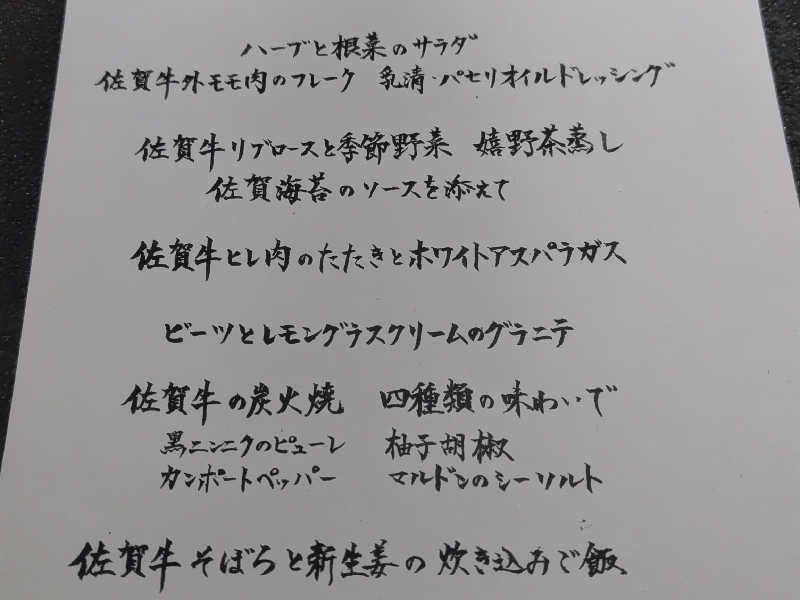 ハーブと根菜のサラダ
佐賀牛外モモ肉のフレーク 乳清・パセリオイルドレッシング
佐賀牛リブロースと季節野菜 嬉野茶蒸し
佐賀海苔のソースを添えて
佐賀牛ヒレ肉のたたきとホワイトアスパラガス
ビーツとレモングラスクリームのグラニテ
佐賀牛の炭火焼 四種類の味わいで
黒ニンニクのピューレ 柚子胡椒
カンポートペッパー マルドンのシーソルト
佐賀牛そぼろと新生姜の炊き込みご飯